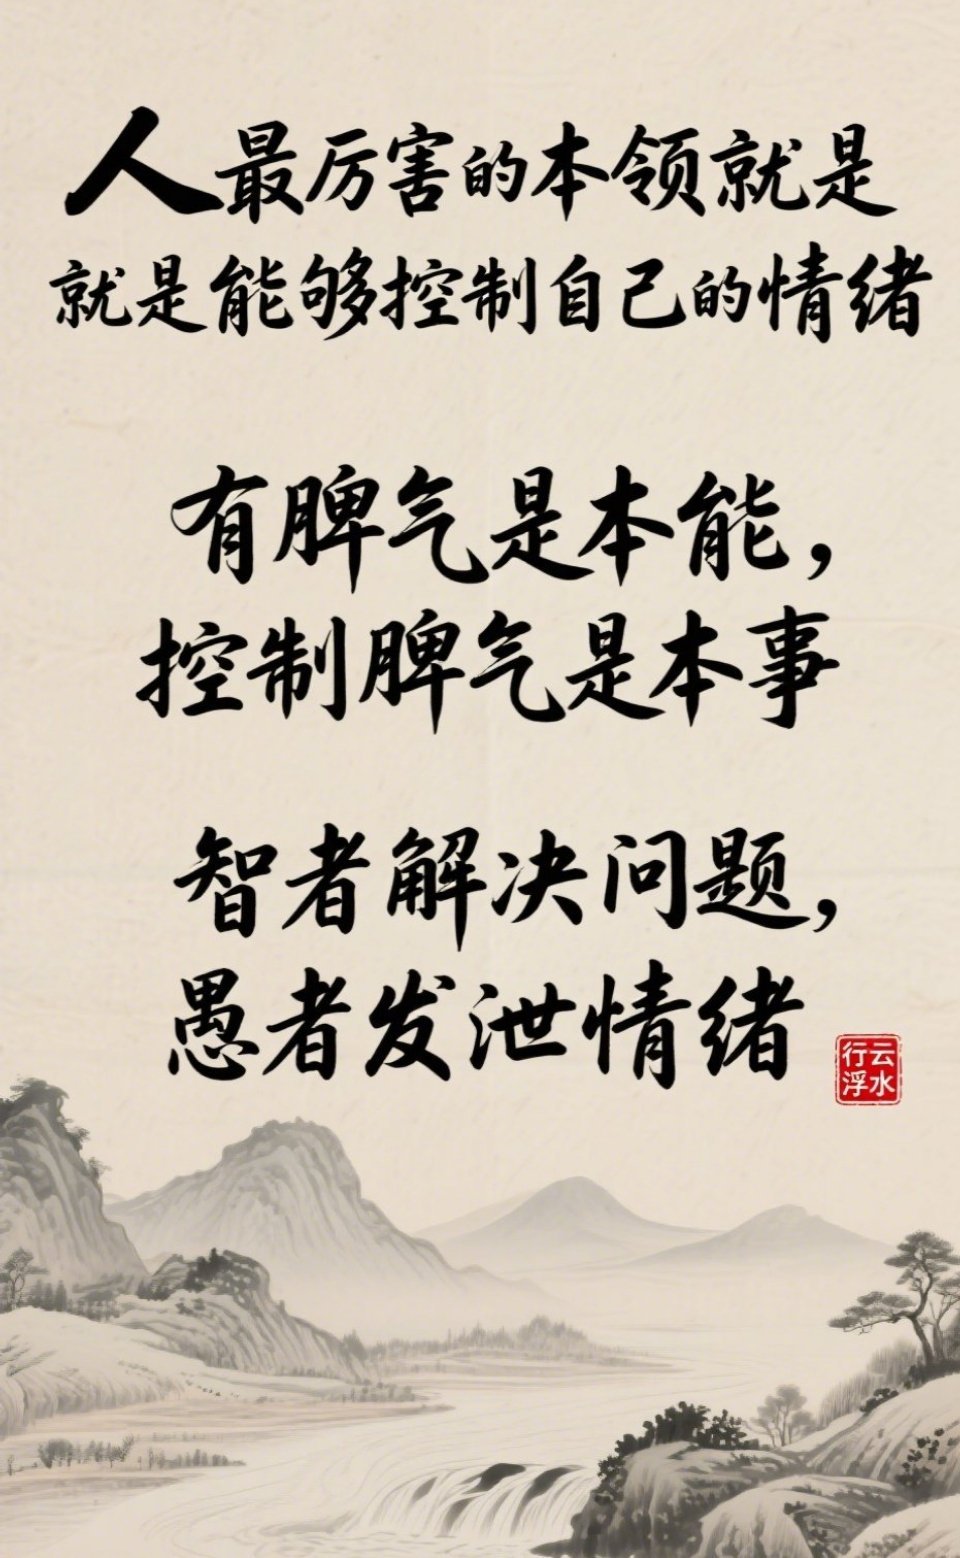 人最厉害的本领就是
就是能够控制自己的情绪
有脾气是本能，
控制脾气是本事
智者解决问题，
愚者发泄情绪
行云
浮水